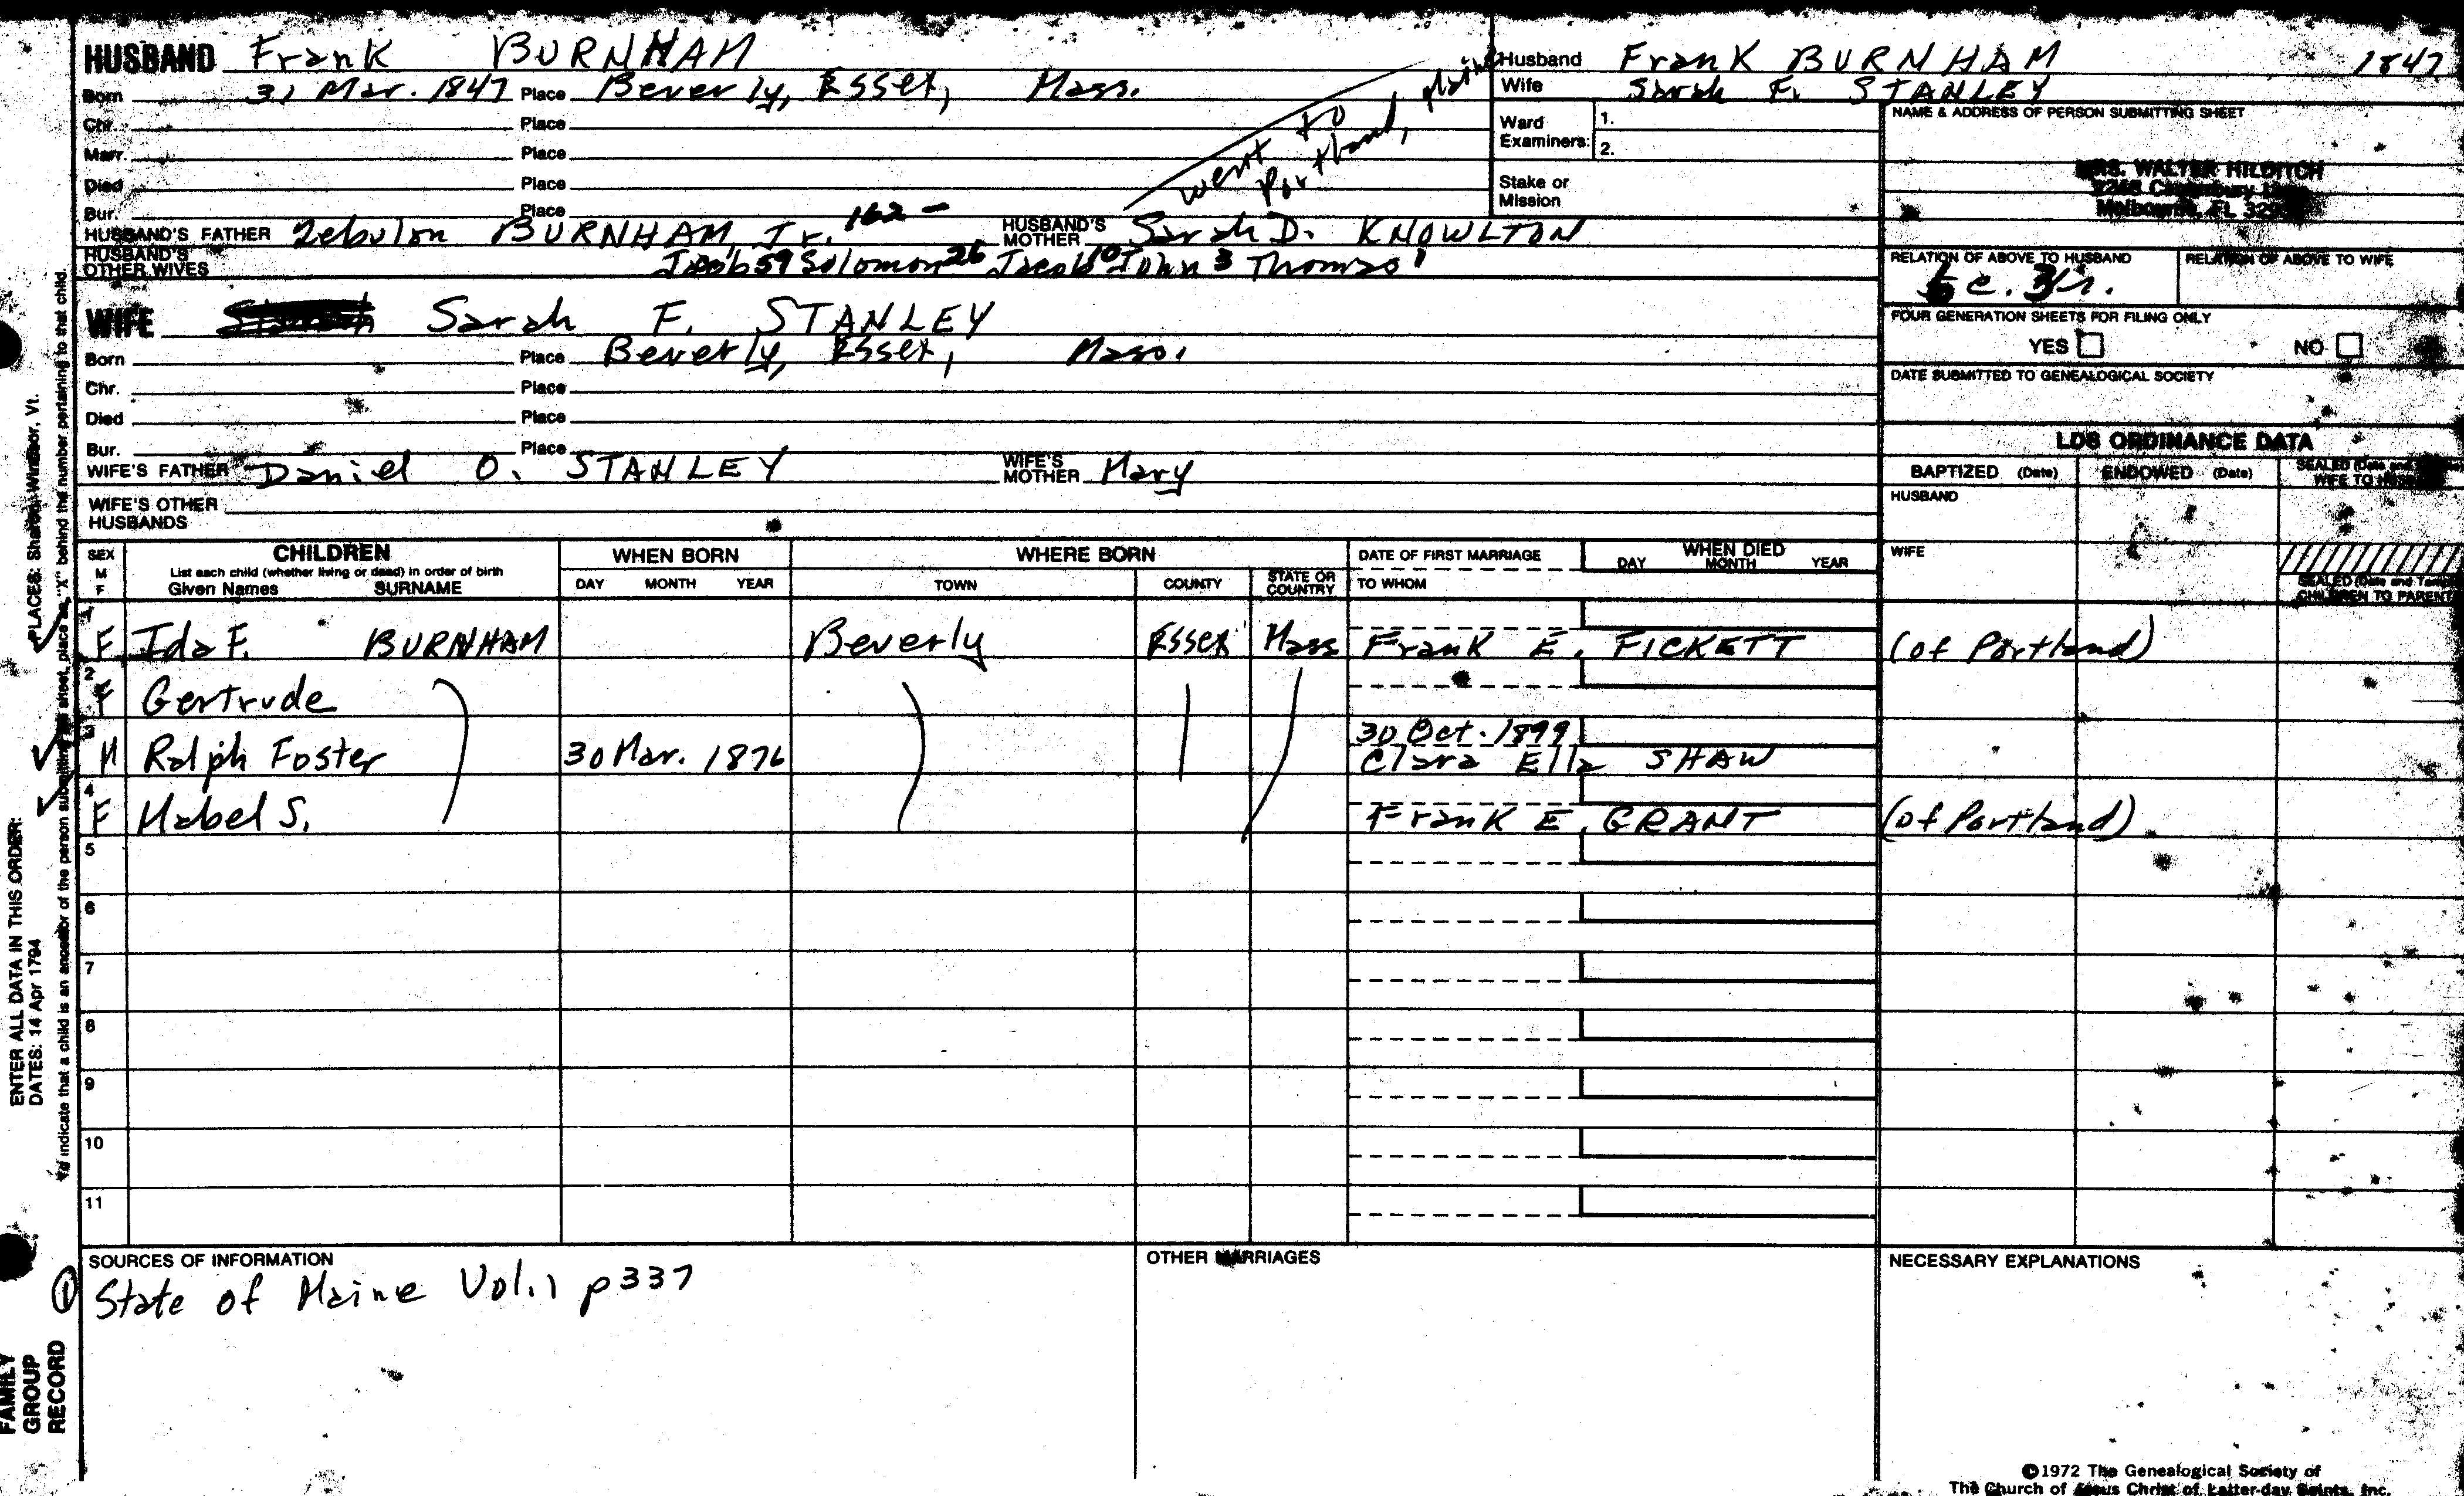 HUSBAND Frank BURNHAM
Born 31 Mar. 1847 Place Beverly, Essex, Mass.
Chr. Place
Marr. Place
Died Place
Bur. Place
went to Portland, Maine
HUSBAND'S FATHER Zebulon BURNHAM, Jr. 162 - HUSBAND'S MOTHER Sarah D. KNOWLTON
HUSBAND'S OTHER WIVES Jacob 59 Solomon 26 Jacob 10 John 3 Thomas 1
WIFE Sarah F. STANLEY
Born Place Beverly, Essex, Mass.
Chr. Place
Died Place
Bur. Place
WIFE'S FATHER Daniel O. STANLEY WIFE'S MOTHER Mary
WIFE'S OTHER HUSBANDS
Husband Frank BURNHAM 1847
Wife Sarah F. STANLEY
Ward Examiners: 1.
2.
Stake or Mission
NAME & ADDRESS OF PERSON SUBMITTING SHEET
MRS. WALTER HILDITCH
Melbourne, FL
RELATION OF ABOVE TO HUSBAND RELATION OF ABOVE TO WIFE
FOUR GENERATION SHEETS FOR FILING ONLY
YES NO
DATE SUBMITTED TO GENEALOGICAL SOCIETY
LDS ORDINANCE DATA
BAPTIZED (Date) ENDOWED (Date) SEALED (Date and WIFE TO
HUSBAND
WIFE
SEALED (Date and Temple) CHILDREN TO PARENTS
SEX M F CHILDREN WHEN BORN WHERE BORN DATE OF FIRST MARRIAGE WHEN DIED
List each child (whether living or dead) in order of birth
Given Names SURNAME DAY MONTH YEAR TOWN COUNTY STATE OR COUNTRY TO WHOM DAY MONTH YEAR
1 F Ida F. BURNHAM Beverly Essex Mass Frank E. FICKETT (of Portland)
2 F Gertrude
30 Oct. 1899
3 M Ralph Foster 30 Mar. 1876 Clara Ella SHAW
4 F Mabel S. Frank E. GRANT (of Portland)
5
6
7
8
9
10
11
SOURCES OF INFORMATION
① State of Maine Vol. 1 p 337
OTHER MARRIAGES
NECESSARY EXPLANATIONS
ENTER ALL DATA IN THIS ORDER:
DATES: 14 Apr 1794 PLACES: Sharon, Windsor, Vt.
To indicate that a child is an ancestor of the person submitting the sheet, place an "X" behind the number pertaining to that child.
FAMILY GROUP RECORD
©1972 The Genealogical Society of
The Church of Jesus Christ of Latter-day Saints, Inc.